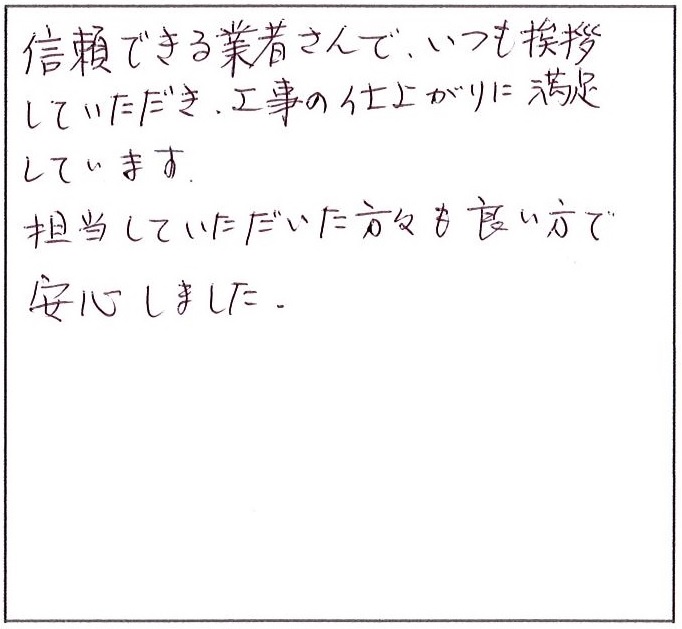 信頼できる業者さんで、いつも挨拶
していただき、工事の仕上がりに満足
しています。
担当していただいた方々も良い方で
安心しました。